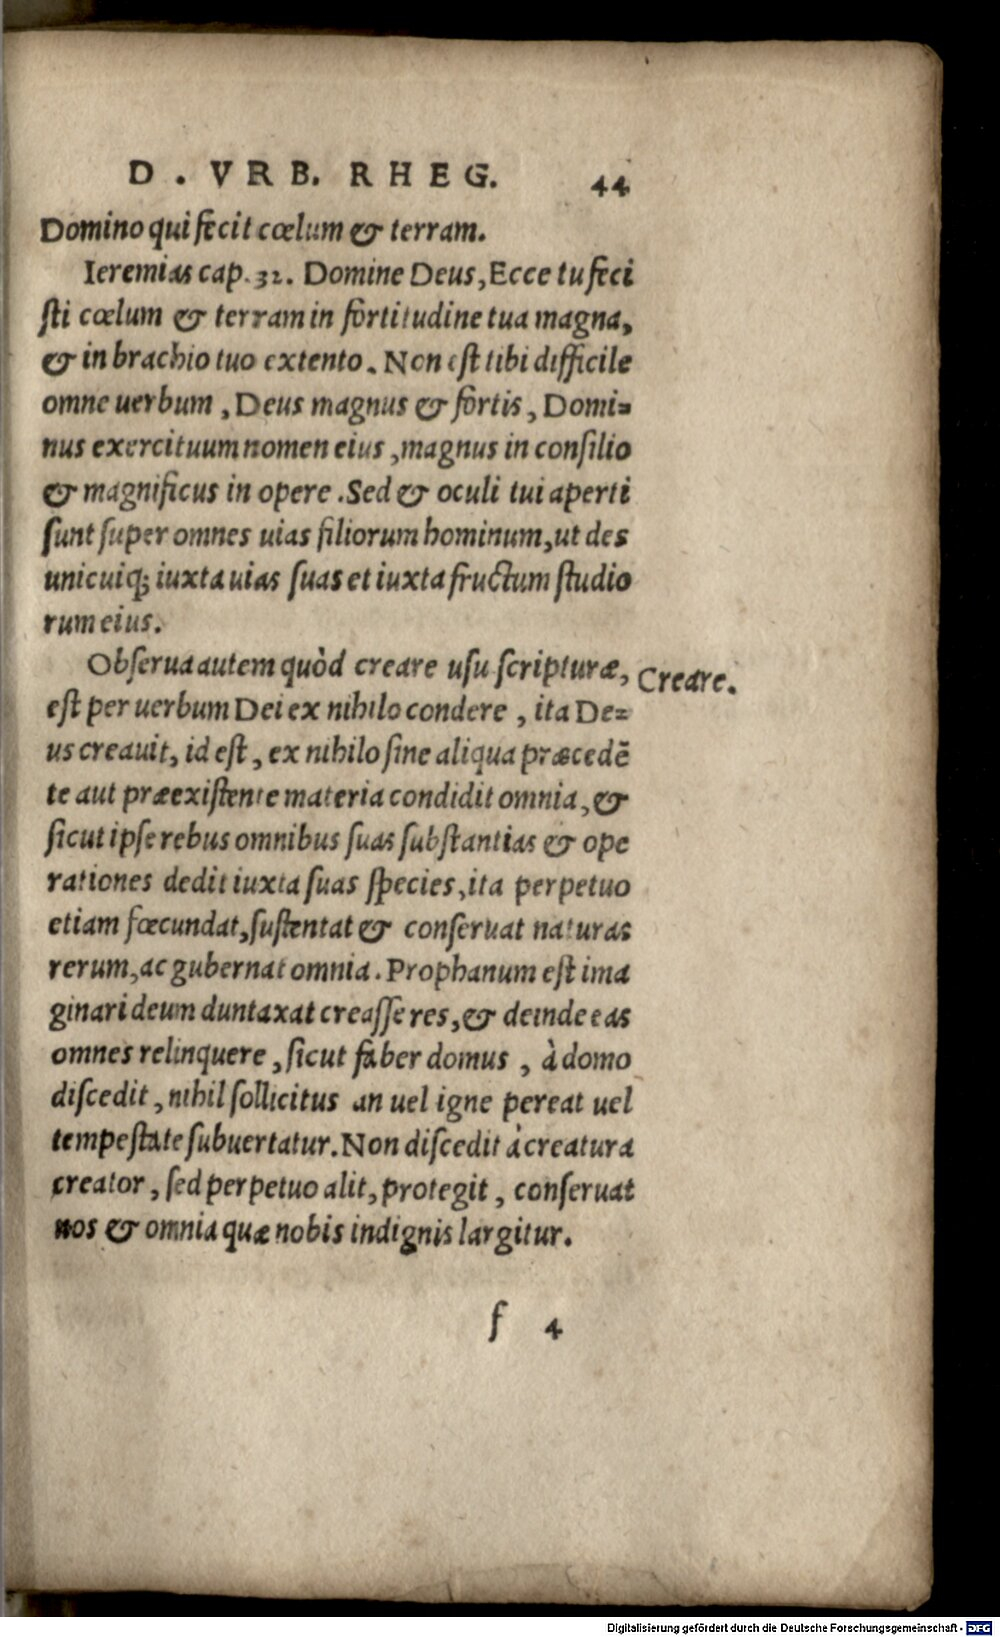 D. VRB. RHEG. 44
Domino qui fecit cœlum & terram.
Ieremias cap. 32. Domine Deus, Ecce tu feci
sti cœlum & terram in fortitudine tua magna,
& in brachio tuo extento. Non est tibi difficile
omne uerbum, Deus magnus & fortis, Domi=
nus exercituum nomen eius, magnus in consilio
& magnificus in opere. Sed & oculi tui aperti
sunt super omnes uias filiorum hominum, ut des
unicuiq; iuxta uias suas et iuxta fructum studio
rum eius.
Obserua autem quòd creare usu scripturæ,
Creare.
est per uerbum Dei ex nihilo condere, ita De=
us creauit, id est, ex nihilo sine aliqua præcedē
te aut præexistente materia condidit omnia, &
sicut ipse rebus omnibus suas substantias & ope
rationes dedit iuxta suas species, ita perpetuo
etiam fœcundat, sustentat & conseruat naturas
rerum, ac gubernat omnia. Prophanum est ima
ginari deum duntaxat creasse res, & deinde eas
omnes relinquere, sicut faber domus, à domo
discedit, nihil sollicitus an uel igne pereat uel
tempestate subuertatur. Non discedit à creatura
creator, sed perpetuo alit, protegit, conseruat
nos & omnia quæ nobis indignis largitur.
f 4
Digitalisierung gefördert durch die Deutsche Forschungsgemeinschaft - DFG